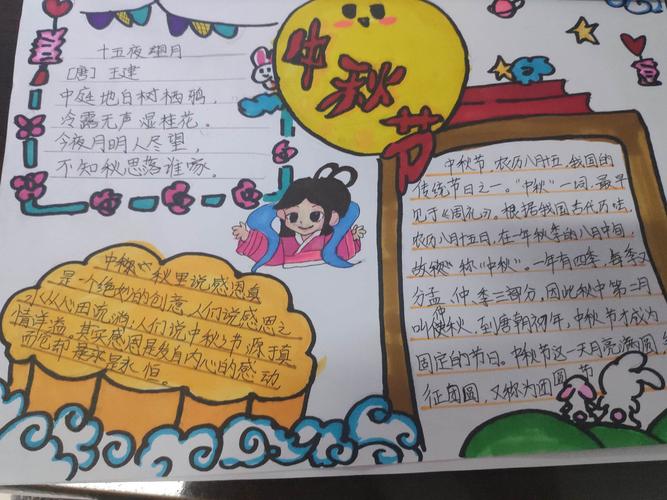 十五夜望月
[唐] 王建
中庭地白树栖鸦，
冷露无声湿桂花。
今夜月明人尽望，
不知秋思落谁家。
中秋节
中秋节，农历八月十五，我国的
传统节日之一。“中秋”一词，最早
见于《周礼》。根据我国古代历法，
农历八月十五日，在一年秋季的八月中间，
故 称“中秋”。一年有四季，每季又
分孟、仲、季三部分，因此秋中第二月
叫仲秋，到唐朝初年，中秋节才成为
固定的节日。中秋节这一天月亮满圆
征团圆，又称为团圆节
秋里说感恩真
是一个绝妙的创意，人们说感恩之
从心田流淌，人们说中秋之书源于真
情洋溢，其实感恩是发自内心的感动
而 是永恒。